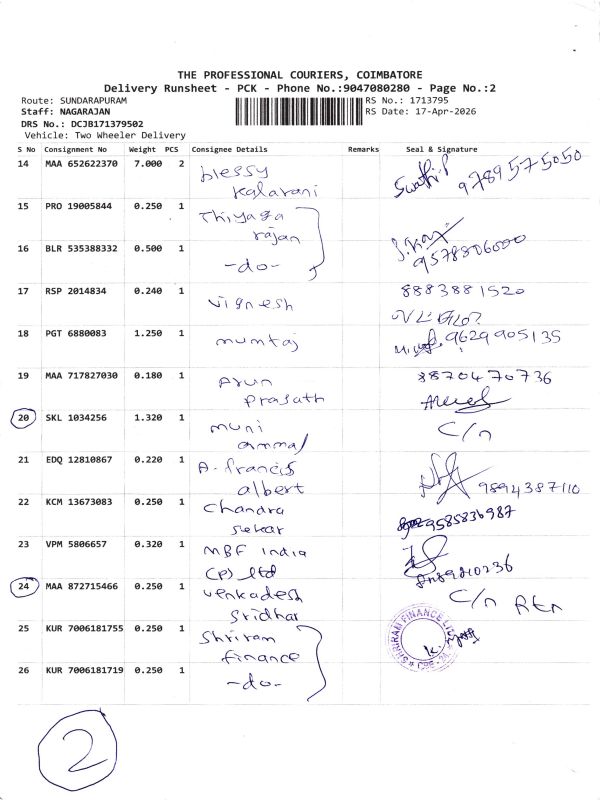 THE PROFESSIONAL COURIERS, COIMBATORE
Delivery Runsheet - PCK - Phone No.:9047080280 - Page No.:2
Route: SUNDARAPURAM RS No.: 1713795
Staff: NAGARAJAN RS Date: 17-Apr-2026
DRS No.: DCJB171379502
Vehicle: Two Wheeler Delivery
S No Consignment No Weight PCS Consignee Details Remarks Seal & Signature
14 MAA 652622370 7.000 2 blessy
kalarani 9789575050
15 PRO 19005844 0.250 1 Thiyaga
rajan
16 BLR 535388332 0.500 1
-do-
17 RSP 2014834 0.240 1 8883881520
vignesh
18 PGT 6880083 1.250 1 mumtaj 9629905135
19 MAA 717827030 0.180 1 Arun 8870470736
prasath
20 SKL 1034256 1.320 1 muni C/n
ammal
21 EDQ 12810867 0.220 1 A. francis
albert 9894387110
22 KCM 13673083 0.250 1 Chandra
sekar 9585836987
23 VPM 5806657 0.320 1 MBF India
(P) ltd
24 MAA 872715466 0.250 1 venkadesh C/n Rtn
Sridhar
25 KUR 7006181755 0.250 1 Shriram SHRIRAM FINANCE LTD
finance
26 KUR 7006181719 0.250 1
-do-
2